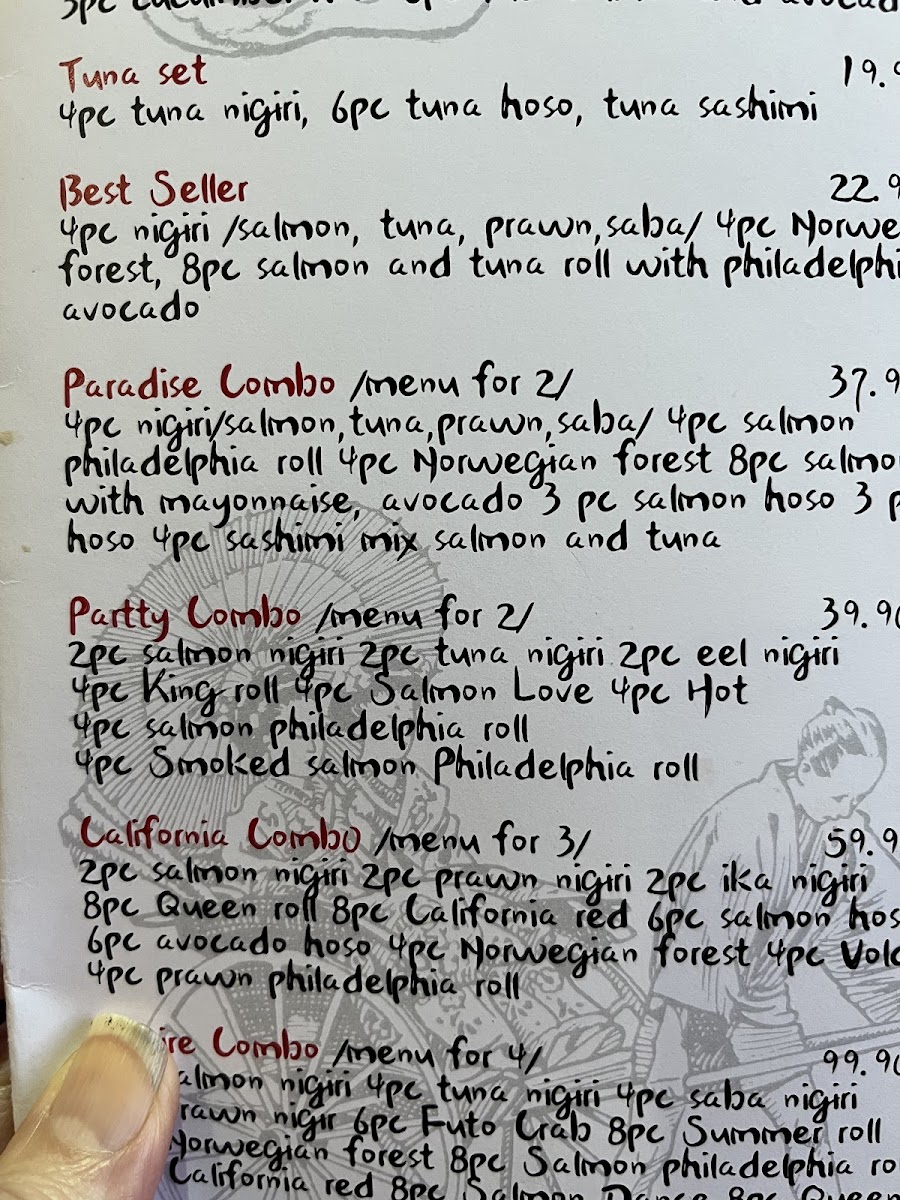 Tuna set 19.9
4pc tuna nigiri, 6pc tuna hoso, tuna sashimi
Best Seller 22.9
4pc nigiri /salmon, tuna, prawn, saba/ 4pc Norwe
forest, 8pc salmon and tuna roll with philadelphi
avocado
Paradise Combo /menu for 2/ 37.9
4pc nigiri/salmon, tuna, prawn, saba/ 4pc salmon
philadelphia roll 4pc Norwegian forest 8pc salmo
with mayonnaise, avocado 3 pc salmon hoso 3 p
hoso 4pc sashimi mix salmon and tuna
Partty Combo /menu for 2/ 39.90
2pc salmon nigiri 2pc tuna nigiri 2pc eel nigiri
4pc King roll 4pc Salmon Love 4pc Hot
4pc salmon philadelphia roll
4pc Smoked salmon Philadelphia roll
California Combo /menu for 3/ 59.9
2pc salmon nigiri 2pc prawn nigiri 2pc ika nigiri
8pc Queen roll 8pc California red 6pc salmon hos
6pc avocado hoso 4pc Norwegian forest 4pc Volc
4pc prawn philadelphia roll
ire Combo /menu for 4/ 99.90
almon nigiri 4pc tuna nigiri 4pc saba nigiri
rawn nigir 6pc Futo Crab 8pc Summer roll
Norwegian forest 8pc Salmon philadelphia ro
California red 8pc Salmon Dance 8pc Queen